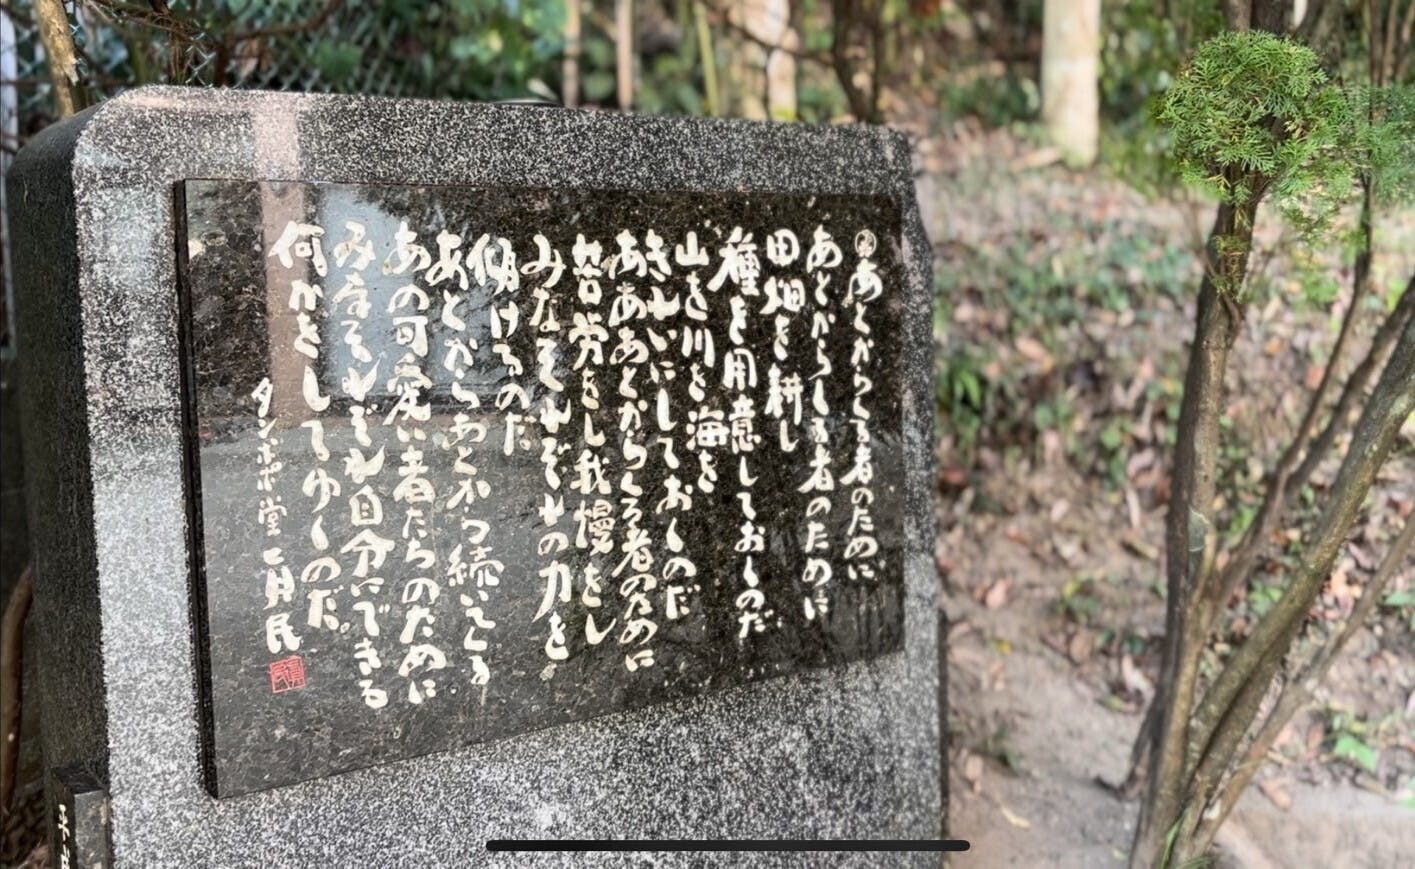 あとからくる者のために
あとからくる者のために
田畑を耕し
種を用意しておくのだ
山を川を海を
きれいにしておくのだ
あああとからくる者のために
苦労をし我慢をし
みなそれぞれの力を
傾けるのだ
あとからあとから続いてくる
あの可愛い者たちのために
みなそれぞれ自分にできる
何かをしてゆくのだ
タンポポ堂 真民